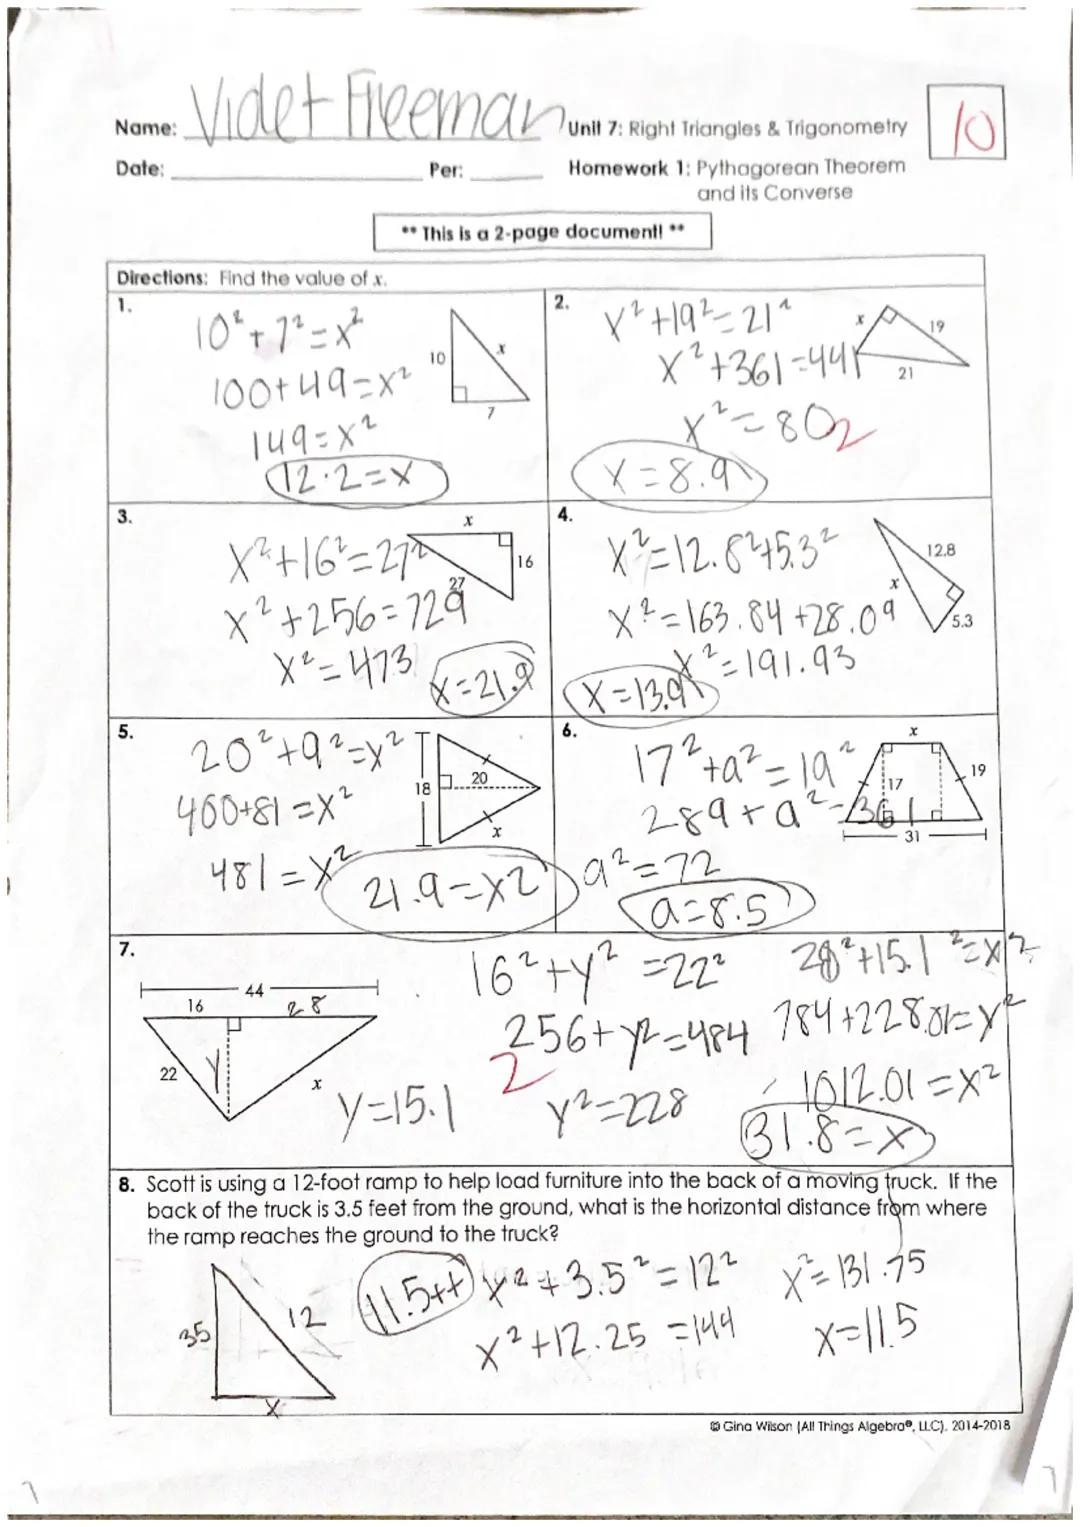 Name: Violet Freeman
Unit 7: Right Triangles & Trigonometry
10
Date: Per:
Homework 1: Pythagorean Theorem
and its Converse
** This is a 2-page document! **
Directions: Find the value of x.
1.
10² + 7² = x²
100 + 49 = x²
149 = x²
12.2 = x
10
x
7
2.
x² + 19² = 21²
x² + 361 = 441
x² = 80
2
x = 8.9
x
19
21
3.
x² + 16² = 27²
x² + 256 = 729
x² = 473
x = 21.9
x
16
27
4.
x² = 12.8² + 5.3²
x² = 163.84 + 28.09
x² = 191.93
x = 13.9
12.8
x
5.3
5.
20² + 9² = x²
400 + 81 = x²
481 = x²
21.9 = x2
18
20
x
6.
17² + a² = 19²
289 + a² = 361
a² = 72
a = 8.5
x
17
19
31
7.
44
16 28
22
y
x
y = 15.1
16² + y² = 22²
256 + y² = 484
2
y² = 228
28² + 15.1² = x²
784 + 228.01 = x²
1012.01 = x²
31.8 = x
8. Scott is using a 12-foot ramp to help load furniture into the back of a moving truck. If the
back of the truck is 3.5 feet from the ground, what is the horizontal distance from where
the ramp reaches the ground to the truck?
35
12
x
11.5 ft
x² + 3.5² = 12²
x² + 12.25 = 144
x² = 131.75
x = 11.5
© Gina Wilson (All Things Algebra®, LLC), 2014-2018